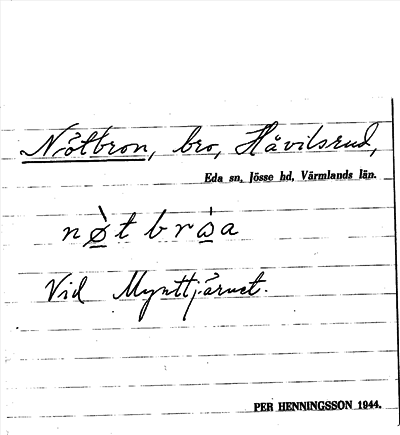 Nötbron, bro, Håvilsrud,
Eda sn, Jösse hd, Värmlands län.
nø̀tbrωa
Vid Mynttjärnet.
PER HENNINGSSON 1944.